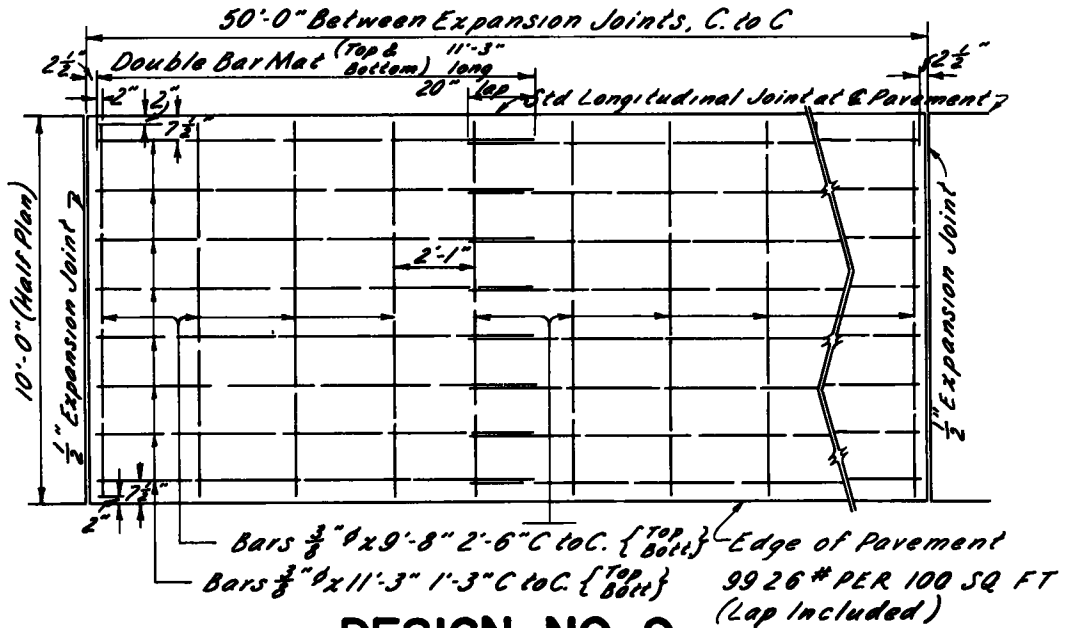 50'-0" Between Expansion Joints, C. to C
2 1/2"
Double Bar Mat (Top & Bottom) 11'-3" long
2 1/2"
20" lap
Std Longitudinal Joint at ℄ Pavement
2"
2"
7 1/2"
10'-0" (Half Plan)
1/2" Expansion Joint
2'-1"
1/2" Expansion Joint
7 1/2"
2"
Bars 3/8" φ x 9'-8" 2'-6" C to C. {Top Bott}
Edge of Pavement
Bars 3/8" φ x 11'-3" 1'-3" C to C. {Top Bott}
99 26 # PER 100 SQ FT
(Lap Included)